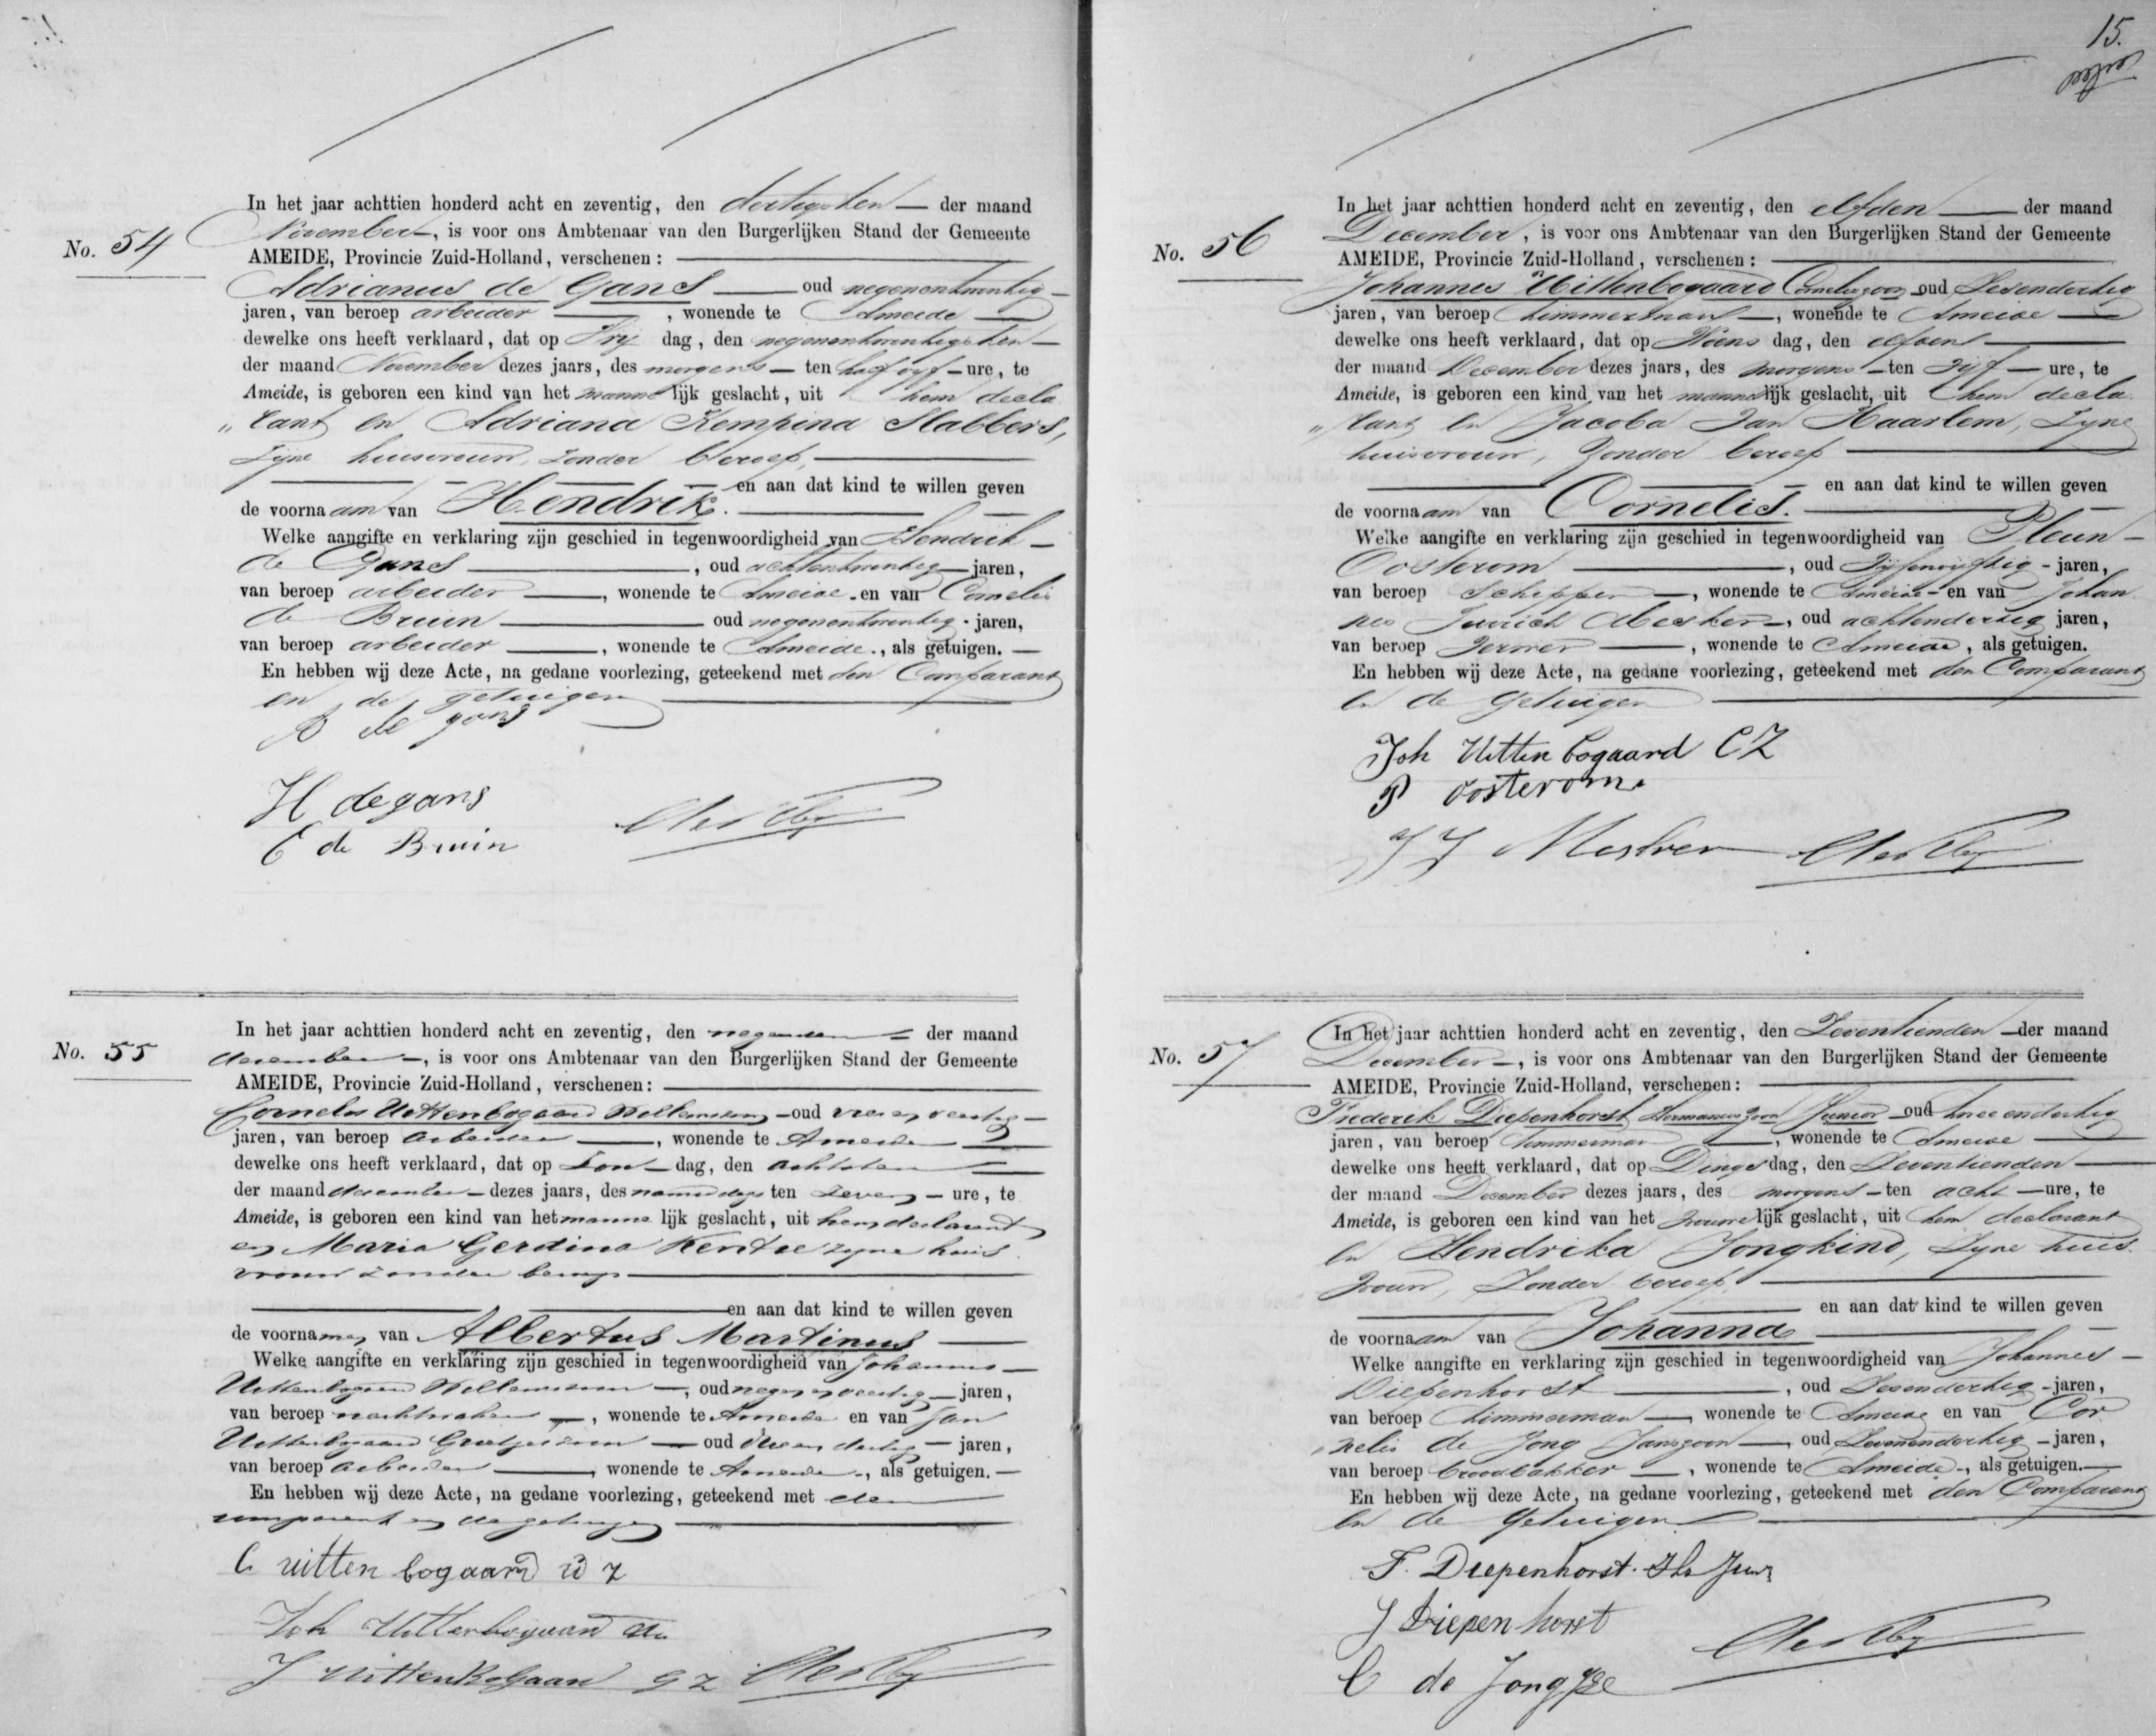 In het jaar achttien honderd acht en zeventig, den dertigsten — der maand
No. 54
November, is voor ons Ambtenaar van den Burgerlijken Stand der Gemeente
AMEIDE, Provincie Zuid-Holland, verschenen:
Adrianus de Gans — oud negenentwintig
jaren, van beroep arbeider —, wonende te Ameide
dewelke ons heeft verklaard, dat op Vrij dag, den negenentwintigsten
der maand November dezes jaars, des morgens — ten half vijf — ure, te
Ameide, is geboren een kind van het manne lijk geslacht, uit hem decla
„ rant en Adriana Kempina Slabbers,
zijne huisvrouw, zonder beroep,
en aan dat kind te willen geven
de voornaam van Hendrik.
Welke aangifte en verklaring zijn geschied in tegenwoordigheid van Hendrik
de Gans —, oud achtentwintig — jaren,
van beroep arbeider —, wonende te Ameide en van Cornelis
de Bruin — oud negenentwintig jaren,
van beroep arbeider —, wonende te Ameide, als getuigen. —
En hebben wij deze Acte, na gedane voorlezing, geteekend met den Comparant
en de getuigen
A de gans
H de gans
C de Bruin
In het jaar achttien honderd acht en zeventig, den negenden — der maand
No. 55
december —, is voor ons Ambtenaar van den Burgerlijken Stand der Gemeente
AMEIDE, Provincie Zuid-Holland, verschenen:
Cornelis Uittenbogaard Willemszoon — oud vier en veertig
jaren, van beroep arbeider —, wonende te Ameide
dewelke ons heeft verklaard, dat op Zon — dag, den achtsten
der maand december — dezes jaars, des namiddags ten zeven — ure, te
Ameide, is geboren een kind van het manne lijk geslacht, uit hem declarant
en Maria Gerdina Kentie zijne huis
vrouw zonder beroep
en aan dat kind te willen geven
de voornamen van Albertus Martinus
Welke aangifte en verklaring zijn geschied in tegenwoordigheid van Johannes
Uittenbogaard Willemszoon —, oud negen en veertig — jaren,
van beroep nachtwaker —, wonende te Ameide en van Jan
Uittenbogaard — oud drie en dertig — jaren,
van beroep arbeider —, wonende te Ameide, als getuigen. —
En hebben wij deze Acte, na gedane voorlezing, geteekend met den
comparant en de getuigen
C uittenbogaard W Z
Joh Uittenbogaard
J uittenbogaard G Z
15.
In het jaar achttien honderd acht en zeventig, den elfden — der maand
No. 56
December, is voor ons Ambtenaar van den Burgerlijken Stand der Gemeente
AMEIDE, Provincie Zuid-Holland, verschenen:
Johannes Uittenbogaard Corneliszoon oud zesendertig
jaren, van beroep timmerman —, wonende te Ameide
dewelke ons heeft verklaard, dat op Woens dag, den elfden
der maand December dezes jaars, des morgens — ten vijf — ure, te
Ameide, is geboren een kind van het mannelijk geslacht, uit hem decla
„ rant en Jacoba van Haarlem, zijne
huisvrouw, zonder beroep
en aan dat kind te willen geven
de voornaam van Cornelis.
Welke aangifte en verklaring zijn geschied in tegenwoordigheid van Pleun
Oosterom —, oud vijfenvijftig — jaren,
van beroep Schipper —, wonende te Ameide — en van Johan
nes Meskers —, oud achtendertig jaren,
van beroep —, wonende te Ameide, als getuigen.
En hebben wij deze Acte, na gedane voorlezing, geteekend met den Comparant
en de getuigen
Joh Uittenbogaard CZ
P oosterom.
J J Mesker
In het jaar achttien honderd acht en zeventig, den zeventienden — der maand
No. 57
December —, is voor ons Ambtenaar van den Burgerlijken Stand der Gemeente
AMEIDE, Provincie Zuid-Holland, verschenen:
Frederik Diepenhorst Hermanuszoon Junior oud twee endertig
jaren, van beroep timmerman —, wonende te Ameide
dewelke ons heeft verklaard, dat op Dings dag, den zeventienden
der maand December dezes jaars, des morgens — ten acht — ure, te
Ameide, is geboren een kind van het vrouwelijk geslacht, uit hem declarant
en Hendrika Jongkind, zijne huis
vrouw, zonder beroep,
en aan dat kind te willen geven
de voornaam van Johanna
Welke aangifte en verklaring zijn geschied in tegenwoordigheid van Johannes
Diepenhorst —, oud zesendertig — jaren,
van beroep timmerman — wonende te Ameide en van Cor
„ nelis de Jong Janszoon —, oud zevenendertig — jaren,
van beroep broodbakker —, wonende te Ameide —, als getuigen. —
En hebben wij deze Acte, na gedane voorlezing, geteekend met den Comparant
en de getuigen
F. Diepenhorst. Hz Junr
J Diepenhorst
C de Jong Jz